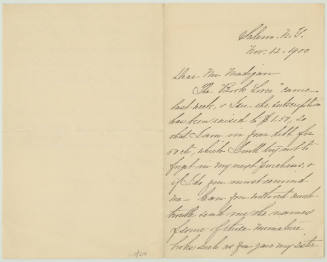 Salem. N. Y.
Nov. 12. 1900
Dear Mr Madigan
The "Book Lover" came
last week, & I see the subscription
has been raised to $1.50, so
that I am in your debt for
50 cts, which I will try not to
forget in my next purchase, &
if I do you must remind
me - Can you without much
trouble send me the names
of some of those miniature
books such as you gave my sister